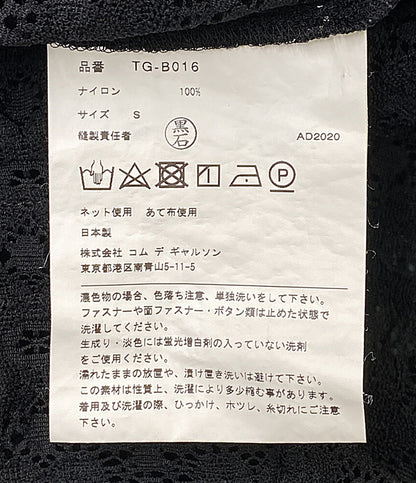 品番 TG-B016
ナイロン 100%
サイズ S
縫製責任者 黒石 AD2020
ネット使用 あて布使用
日本製
株式会社 コム デ ギャルソン
東京都港区南青山5-11-5
濃色物の場合、色落ち注意、単独洗いをして下さい。
ファスナーや面ファスナー・ボタン類は止めた状態で
洗濯してください。
生成り・淡色には蛍光増白剤の入っていない洗剤
をご使用ください。
濡れたままの放置や、漬け置き洗いは避けて下さい。
この素材は性質上、洗濯により多少縮む事があります。
着用及び洗濯の際、ひっかけ、ホツレ、糸切れに注意して下さい。